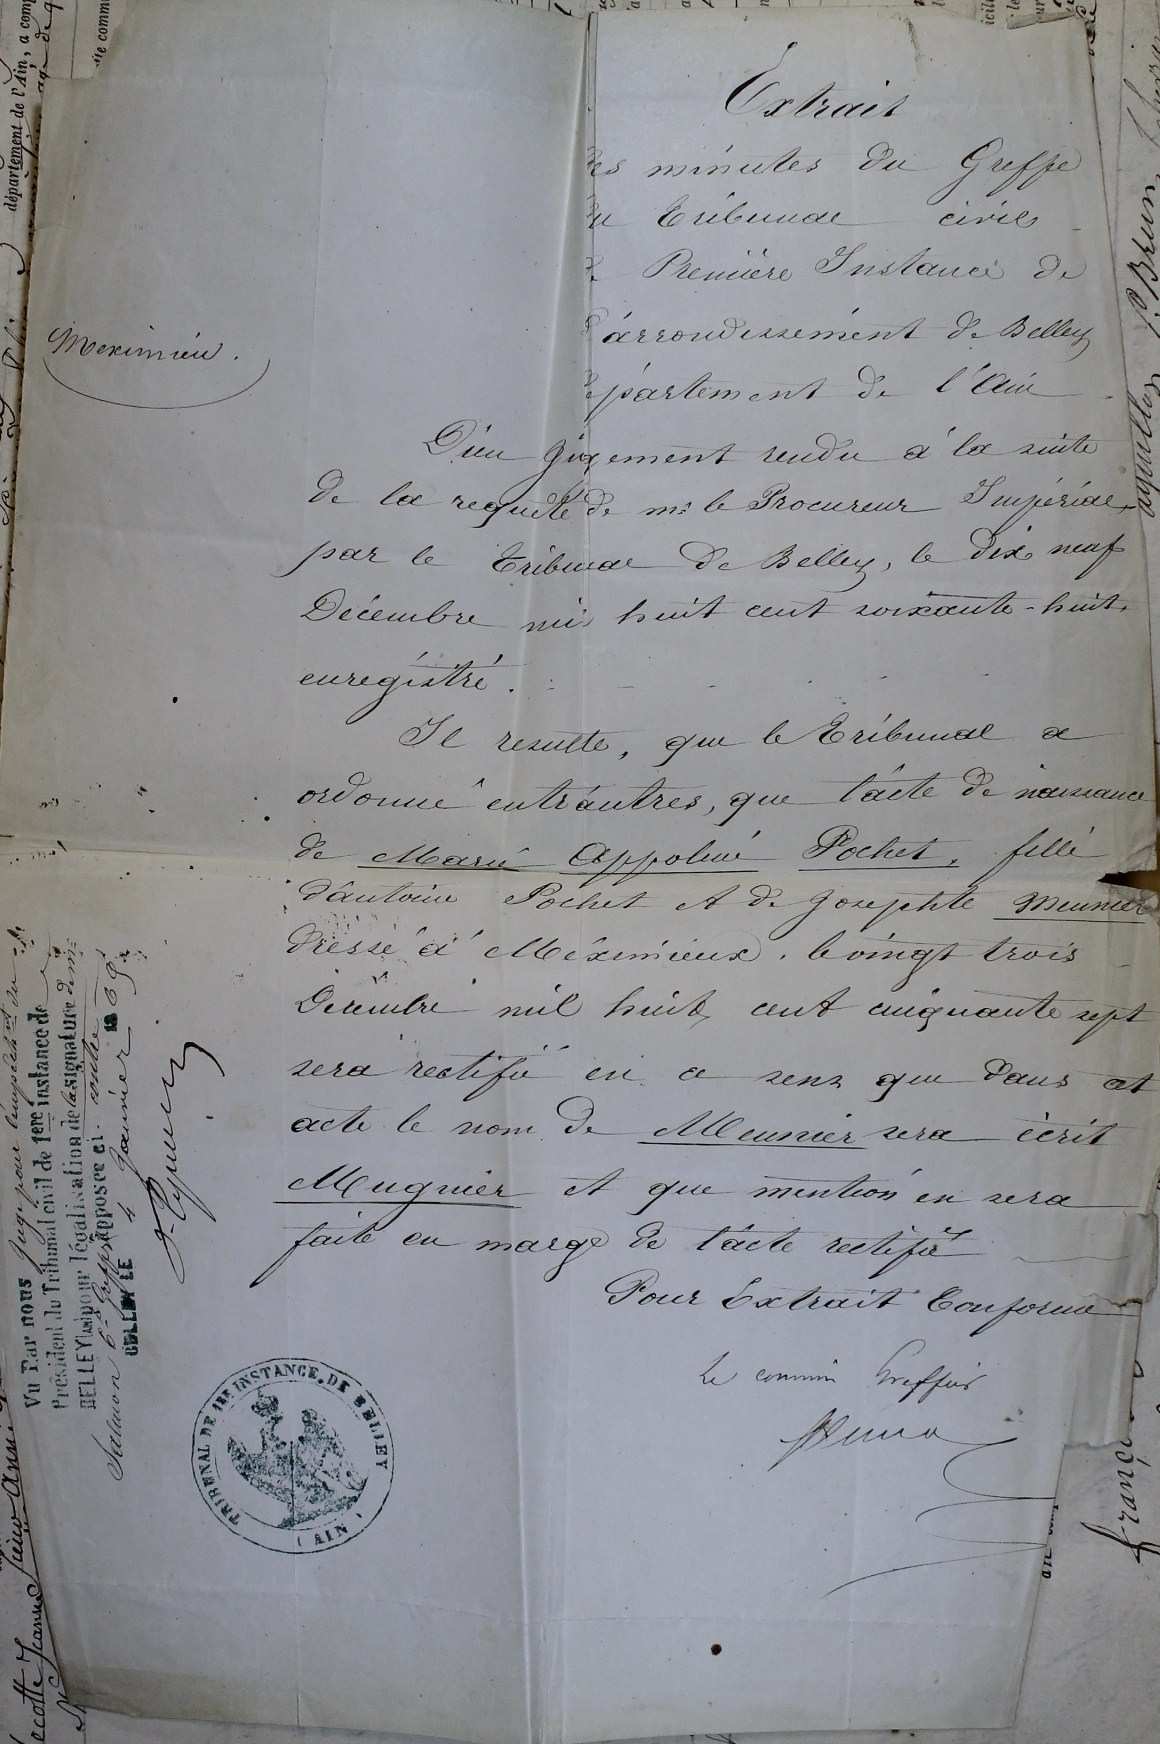 Extrait
des minutes du Greffe
du Tribunal civil
de Première Instance de
l'arrondissement de Belley
département de l'Ain
Meximieu.
D'un jugement rendu à la suite
de la requête de mr le Procureur Impérial
par le Tribunal de Belley, le dix neuf
Décembre mil huit cent soixante-huit,
enregistré.
Il resulte, que le Tribunal a
ordonné entr'autres, que l'acte de naissance
de Marie Appolinie Pochet, fille
d'antoine Pochet et de Josephte Meunier
dressé à Méximieux, le vingt trois
Décembre mil huit cent cinquante sept
sera rectifié en ce sens que dans cet
acte le nom de Meunier sera écrit
Mugnier et que mention en sera
faite en marge de l'acte rectifié
Pour Extrait Conforme
Le commis Greffier
Vu Par nous Juge pour empêcht du
Président du Tribunal civil de 1ere instance de
BELLEY (Ain) pour légalisation de la signature de mr
apposée ci-contre
BELLEY LE 4 Janvier 1869
TRIBUNAL DE 1RE INSTANCE, DE BELLEY
(AIN)
département de l'Ain, a comp